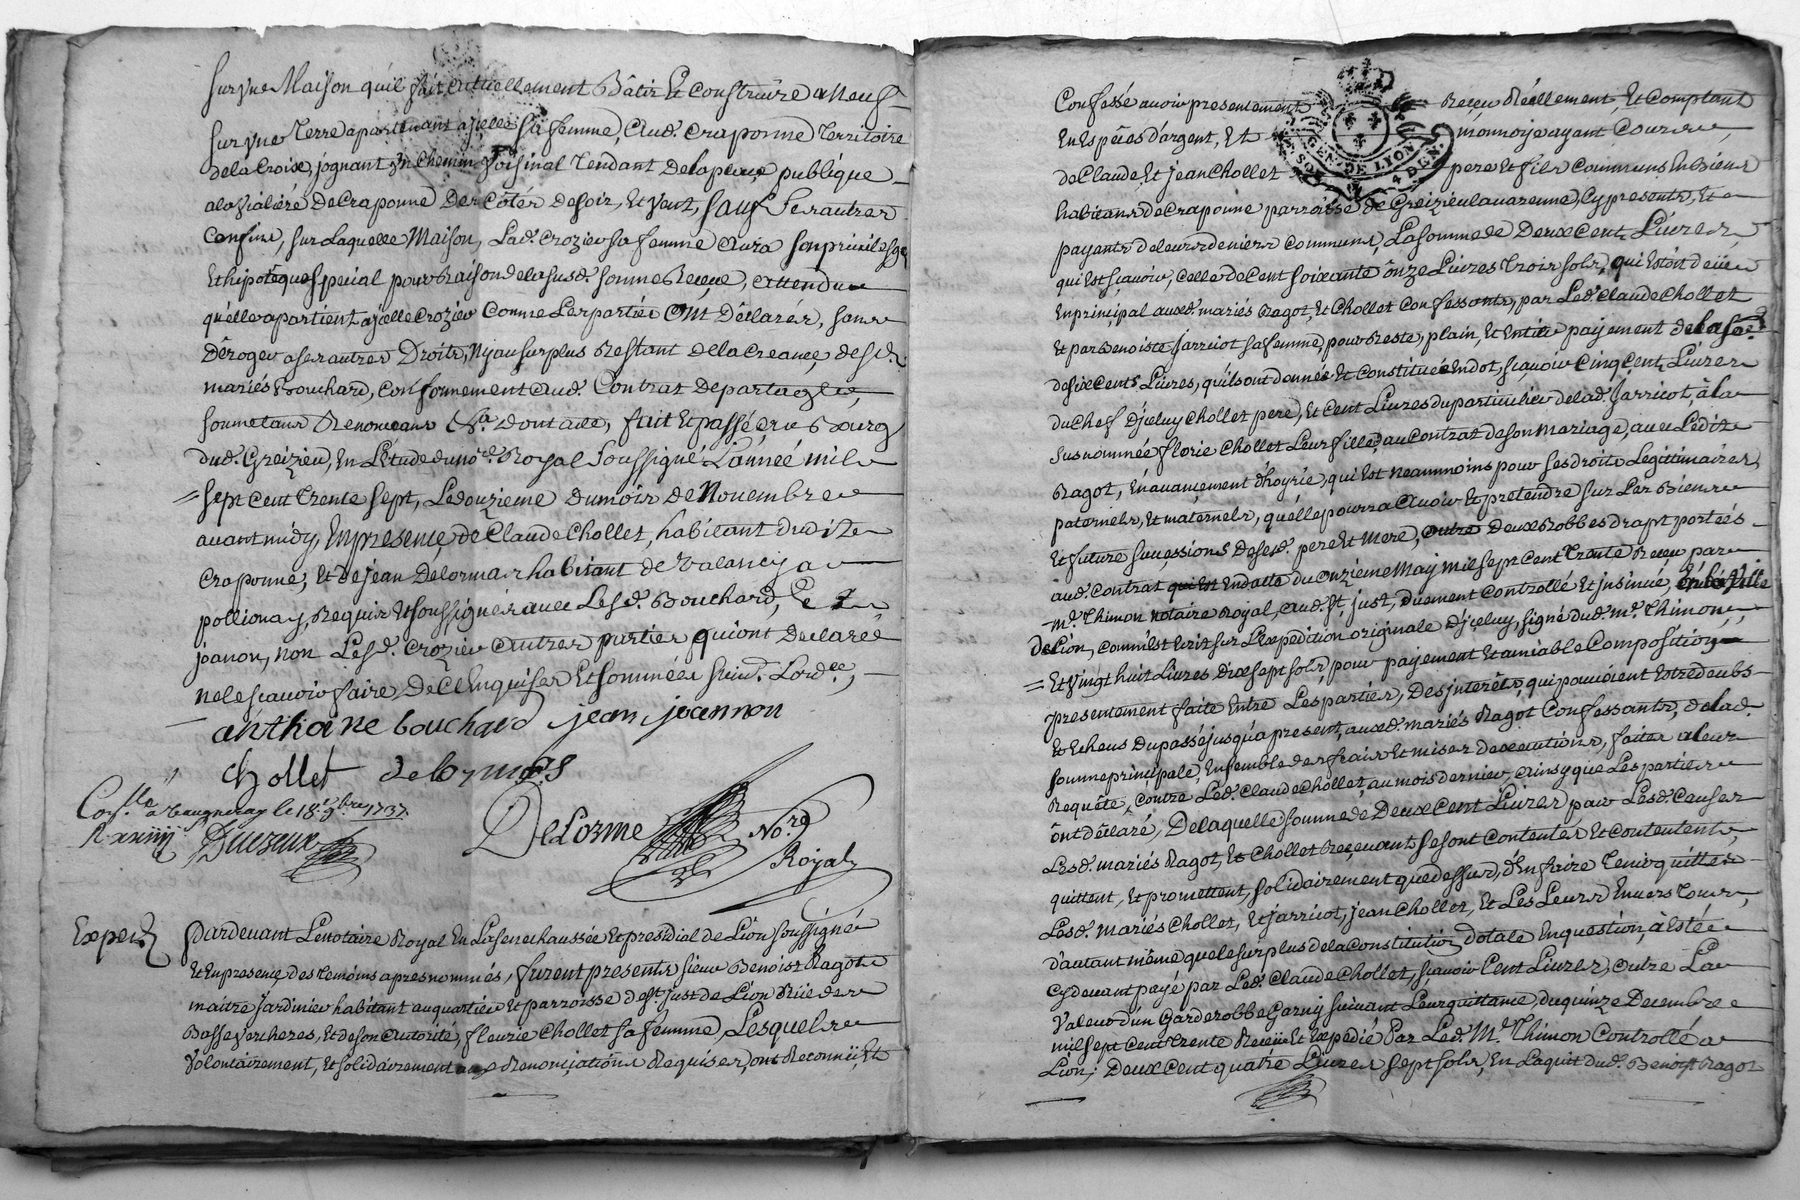 sur une Maison qu'il fait actuellement Bâtir Et construire a Neuf
sur une Terre apartenant a jcelle sa femme, Aud. Craponne Territoire
de la Croix, jognant un chemin voisinal Tendant de la place publique
a la vialère De Craponne Des Côtés de soir, Et vent, sauf Ses autres
Confins, sur Laquelle Maison, Lad. Crozier sa femme Aura son privilesge
Et hipotèque special pour Raison de la susd. somme Reçeue, attendu
qu'elle apartient a jcelle Crozier Comme Les parties Ont Déclarés, sans
Déroger a ses autres Droits, Ny au surplus Restant de la Creance, desd.
mariés Bouchard, Conformement aud. Contrat De partage,
soumettans Renonceans &a. dont acte, fait Et passé au Bourg
dud. Greizieu, En L'Etude du no.re Royal soussigné L'année mil
sept cent Trente sept, Le douzieme du mois de Novembre
avant midy, En presence de Claude Chollet, habitant dudit
Craponne; Et de jean Delormas habitant de valancy a
pollionay, Requis Et soussignés avec Lesd. Bouchard, Et
joanon, non Lesd. Crozier Autres parties qui ont Declarés
ne le sçavoir faire De ce Enquises Et sommées suiv.t Lord.ce,
anthoine bouchard jean joannon
Chollet delormas
Con.lle a Vaugneray le 18.e 9bre 1737
DeLorme No.re
Royal
Exped.
Pardevant Le notaire Royal En La Senechaussée Et presidial de Lion soussigné
Et En presence des Temoins apres nommés, furent presents sieur Benoist Ragot
maitre Jardinier habitant au quartier Et parroisse de S.t just de Lion Rüe des
Basses vercheres, Et de son Autorité, fleurie Chollet sa femme, Lesquels
volontairement, Et solidairement Renonciations Requises, ont Reconnü, Et
Confessé avoir presentement Reçeu Réellement Et Comptant
En Espèces d'argent, Et monnoye ayant Cours,
GEN. DE LYON
de Claude Et jean Chollet pere Et fils Communs En Biens
habitans de Craponne parroisse de Greizieu la varenne, Cy presents, Et
payants de leurs deniers Communs, La somme de Deux Cent Livres,
qui Est sçavoir, Celle de Cent soixante onze Livres Trois sols, qui Estoit deüe
En principal auxd. mariés Ragot, Et Chollet Confessants, par Led. Claude Chollet
Et par Benoiste Jarricot sa femme, pour Reste, plain, Et Entier payement de la so.e
de six Cents Livres, qu'ils ont donnée Et Constituée En dot, sçavoir Cinq Cent Livres
du Chef D'jceluy Chollet pere, Et Cent Livres du particulier de lad. Jarricot, à la
susnommée florie Chollet Leur fille, au Contrat de son Mariage, avec Ledit
Ragot, En avancement d'hoyrie, qui Est neammoins pour ses droits Legitimaires,
paternels, Et maternels, qu'elle pourra Avoir Et pretendre sur Les Biens
Et future successions Desesd. pere Et Mere, Outre Deux Robbes drapt portées
aud. Contrat qui Est En datte du onzieme May mil sept cent Trente Reçeu par
m.e Thimon notaire Royal, aud. S.t just, Duement Controllé Et jnsinué, En la Ville
de Lion, comm'il Est Ecrit sur L'expedition originale D'jceluy, signé dud. m.e Thimon,
Et Vingt huit Livres Dix sept sols, pour payement Et amiable Composition
presentement faite Entre Les parties, Des jnterêts, qui pouvoient Estre deubs
Et Echeus Du passé jusqu'a present, auxd. mariés Ragot Confessants, de lad.
somme principale, Ensemble des frais Et mises d'executions, faites a leur
Requête, Contre Led. Claude Chollet, au mois dernier, Ainsy que Les parties
ont déclaré, De laquelle somme de Deux Cent Livres, pour Lesd. Causes
Lesd. mariés Ragot, Et Chollet Reçevants se sont Contentés Et Contentent,
quittent, Et promettent, solidairement que dessus, d'En faire Tenir quittes
Lesd. mariés Chollet, Et Jarricot, jean Chollet, Et Les Leurs Envers Tous,
d'autant même que le surplus de la Constitution dotale En question, à Esté
Cy devant payé par Led. Claude Chollet, sçavoir Cent Livres, Outre La
Valeur d'un Garderobbe Garny suivant Leur quittance, du quinze Decembre
mil sept cent Trente Reçeüe Et Expedié Par Led. M.e Thimon Controllé a
Lion; Deux Cent quatre Livres sept sols, En L'aquit dud. Benoist Ragot